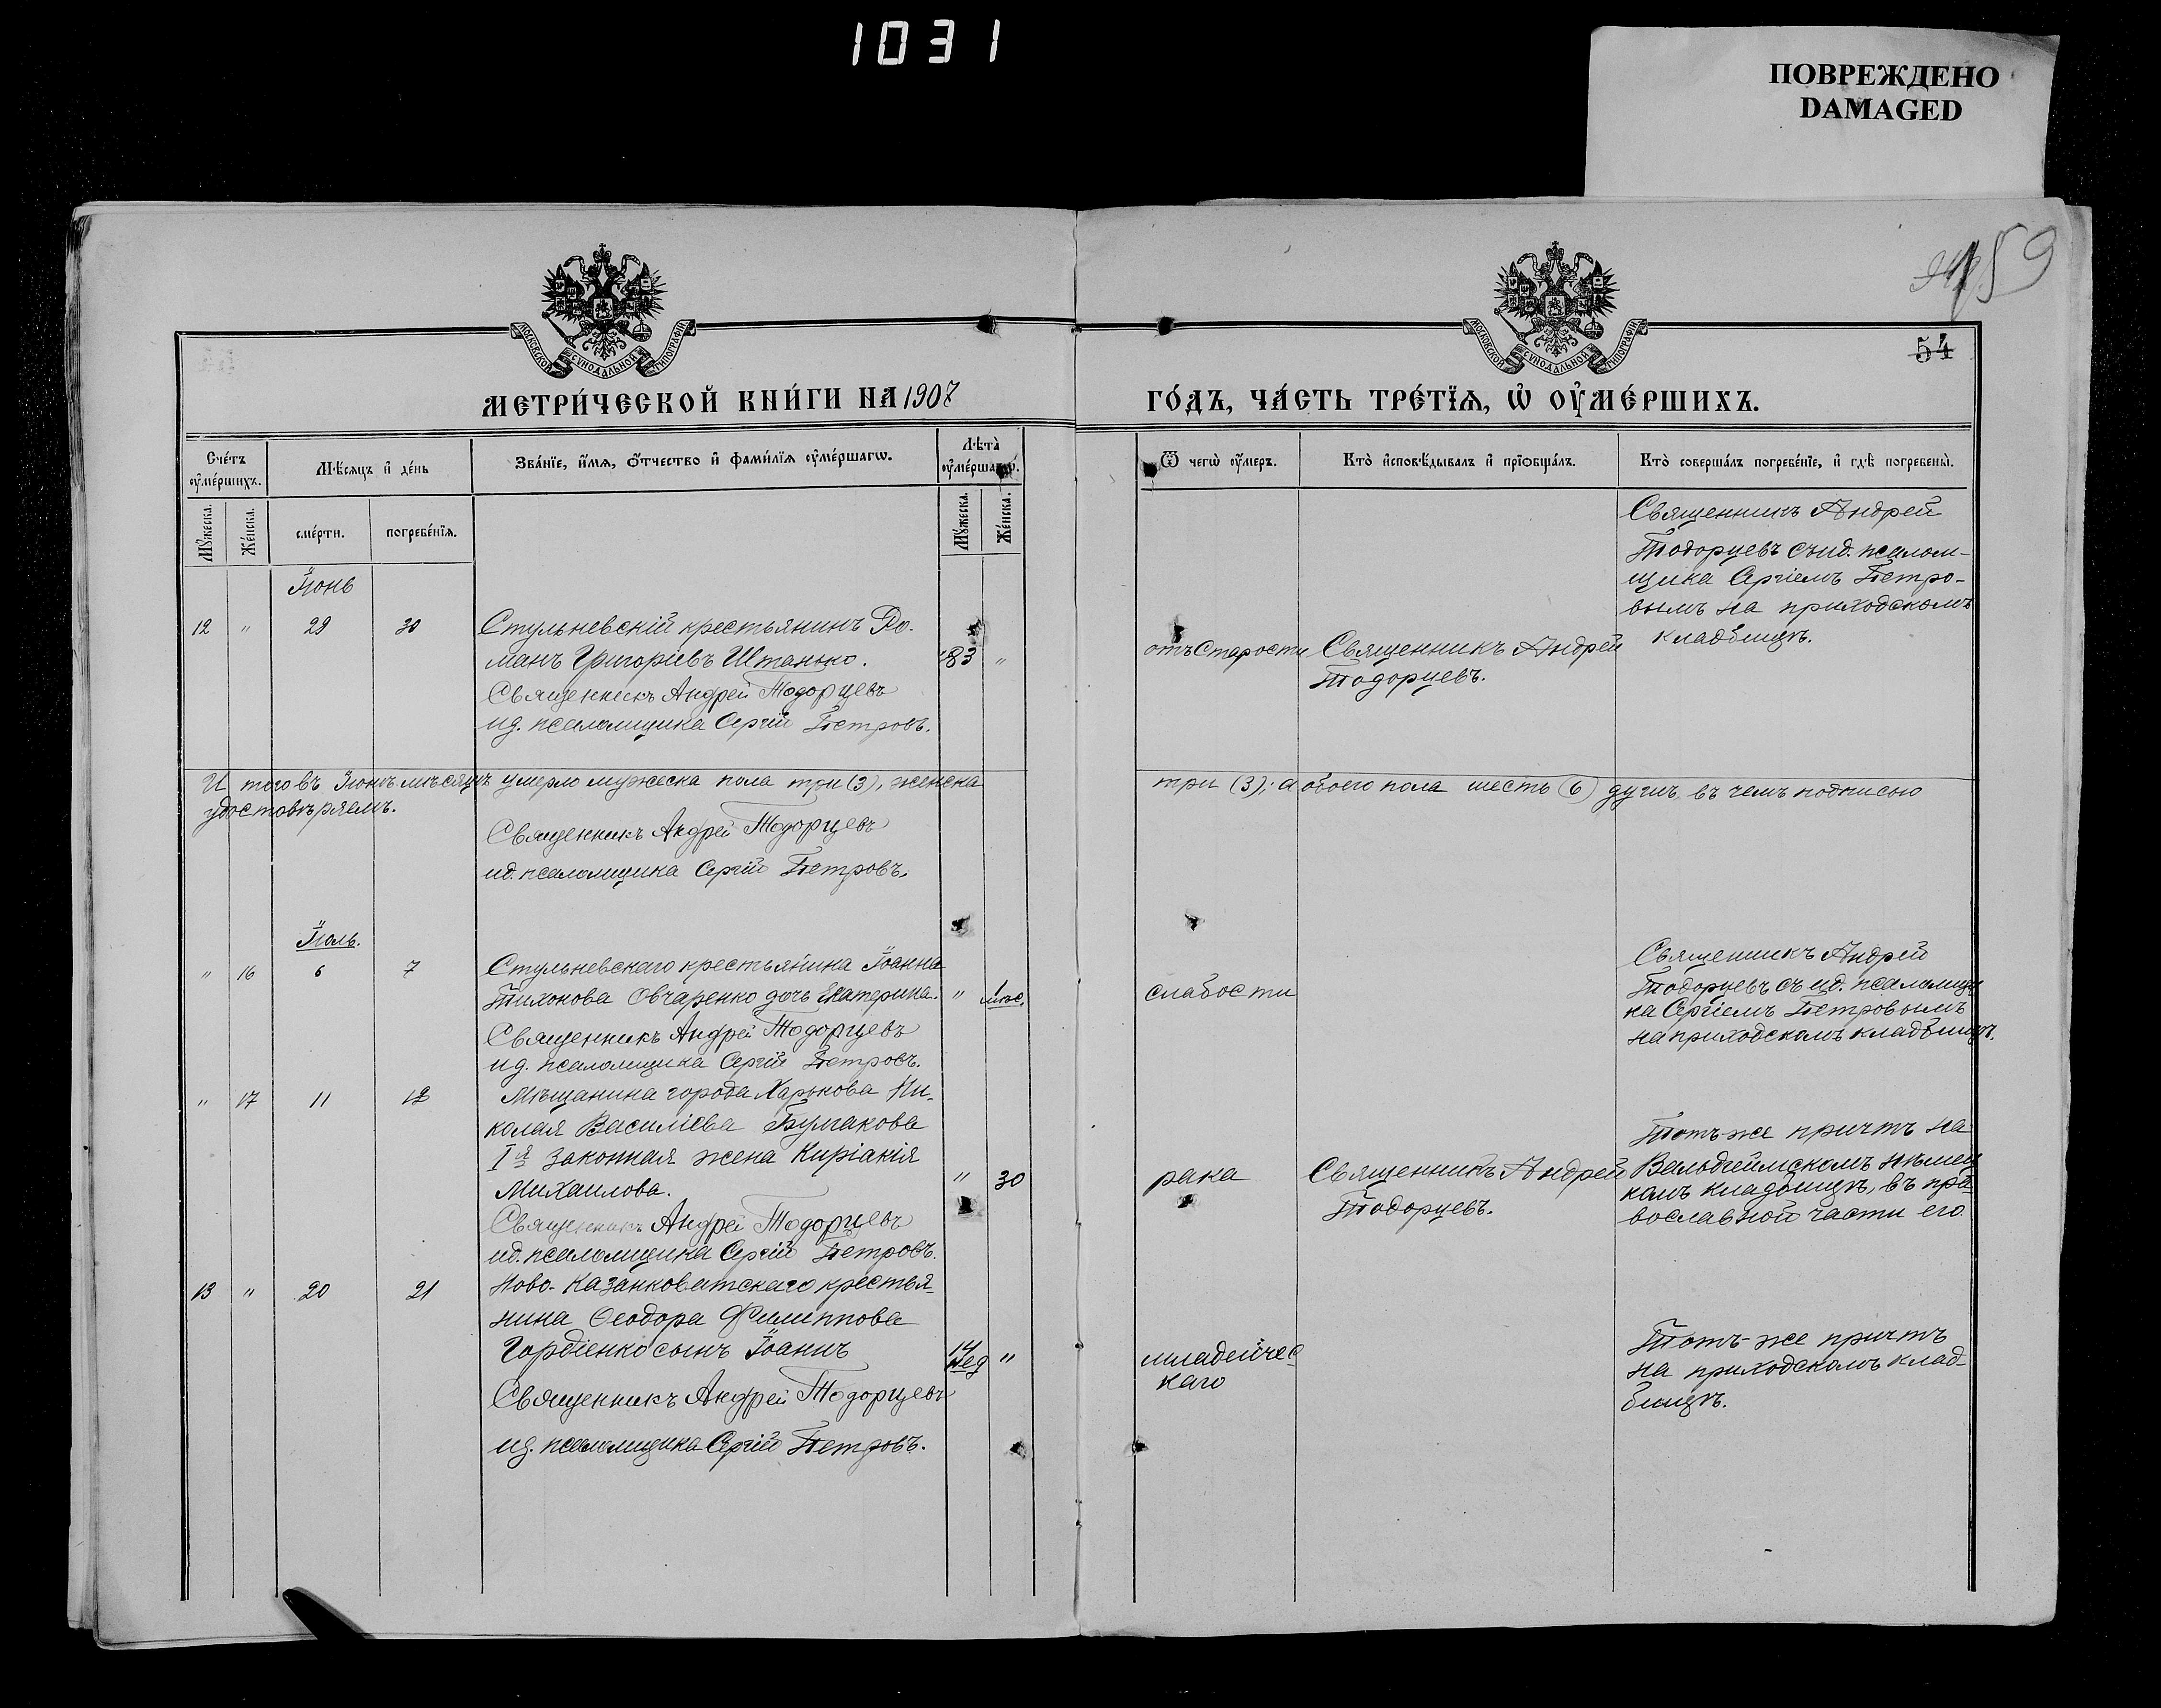 1031
ПОВРЕЖДЕНО
DAMAGED
59
54
МОСКОВСКОЙ СѴНОДАЛЬНОЙ ТИПОГРАФІИ
МОСКОВСКОЙ СѴНОДАЛЬНОЙ ТИПОГРАФІИ
МЕТРИ́ЧЕСКОЙ КНИ́ГИ НА 1907
ГО́ДЪ, ЧА́СТЬ ТРЕ́ТЇѦ, Ѽ ОУ҆МЕ́РШИХЪ.
Сче́тъ оу҆ме́ршихъ.
Мѣ́сяцъ и҆ де́нь
Зва́нїе, и҆́мя, ѻ҆́тчество и҆ фами́лїя оу҆ме́ршагѡ.
Лѣ́та оу҆ме́ршагѡ.
Ѿ чегѡ̀ оу҆́меръ.
Кто̀ и҆сповѣ́дывалъ и҆ прїѻбща́лъ.
Кто̀ соверша́лъ погребе́нїе, и҆ гдѣ̀ погребены̀.
Мꙋ́жеска.
Же́нска.
сме́рти.
погребе́нїя.
Мꙋ́жеска.
Же́нска.
Іюнь
12 " 29 30 Стульневскій крестьянинъ Ро-
манъ Григоріевъ Штанько. 83 "
Священникъ Андрей Тодорцевъ
ид. псаломщика Сергій Петровъ.
отъ старости
Священникъ Андрей
Тодорцевъ.
Священникъ Андрей
Тодорцевъ съ ид. псалом-
щика Сергіемъ Петро-
вымъ на приходскомъ
кладбищѣ.
И того въ Іюнѣ мѣсяцѣ умерло мужеска пола три (3), женска три (3); а обоего пола шесть (6) душъ, въ чемъ подписью
удостовѣряемъ.
Священникъ Андрей Тодорцевъ
ид. псаломщика Сергій Петровъ.
Іюль.
" 16 6 7 Стульневскаго крестьянина Іоанна
Тихонова Овчаренко дочь Екатерина. " 1 мѣс.
Священникъ Андрей Тодорцевъ
ид. псаломщика Сергій Петровъ.
слабости
Священникъ Андрей
Тодорцевъ съ ид. псаломщи
ка Сергіемъ Петровымъ
на приходскомъ кладбищѣ.
" 17 11 12 Мѣщанина города Харькова Ни-
колая Василіева Булгакова
I я законная жена Киріакія
Михаилова. " 30
Священникъ Андрей Тодорцевъ
ид. псаломщика Сергій Петровъ.
рака
Священникъ Андрей
Тодорцевъ.
Тотъ-же причтъ на
Вальдгеймскомъ нѣмец
комъ кладбищѣ, въ пра-
вославной части его
13 " 20 21 Ново-Казанковатскаго крестья-
нина Ѳеодора Филиппова
Гордіенко сынъ Іоаннъ 14 нед "
Священникъ Андрей Тодорцевъ
ид. псаломщика Сергій Петровъ.
младенчес
каго
Тотъ-же причтъ
на приходскомъ клад-
бищѣ.